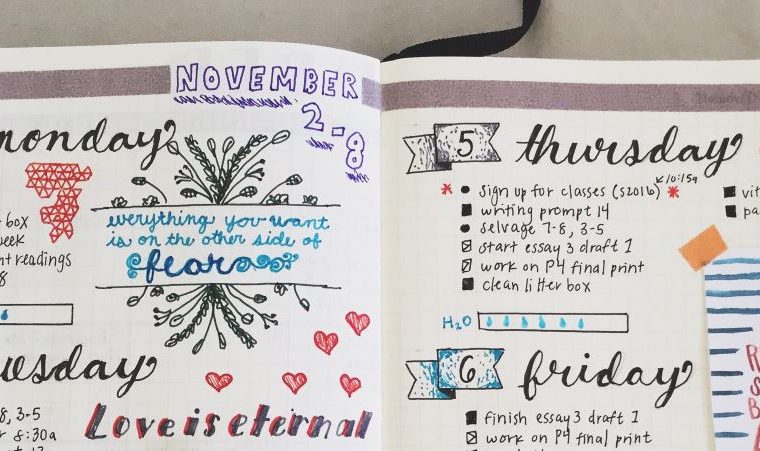 NOVEMBER
2-8
monday
box
week
readings
8
everything you want
is on the other side of
fear
8, 3-5
8:30a
Love is eternal
5 thursday
10:15a
sign up for classes (S2016)
writing prompt 14
selvage 7-8, 3-5
start essay 3 draft 1
work on P4 final print
clean litter box
H₂O
6 friday
finish essay 3 draft 1
work on P4 final print
vit
pa
R
S
B